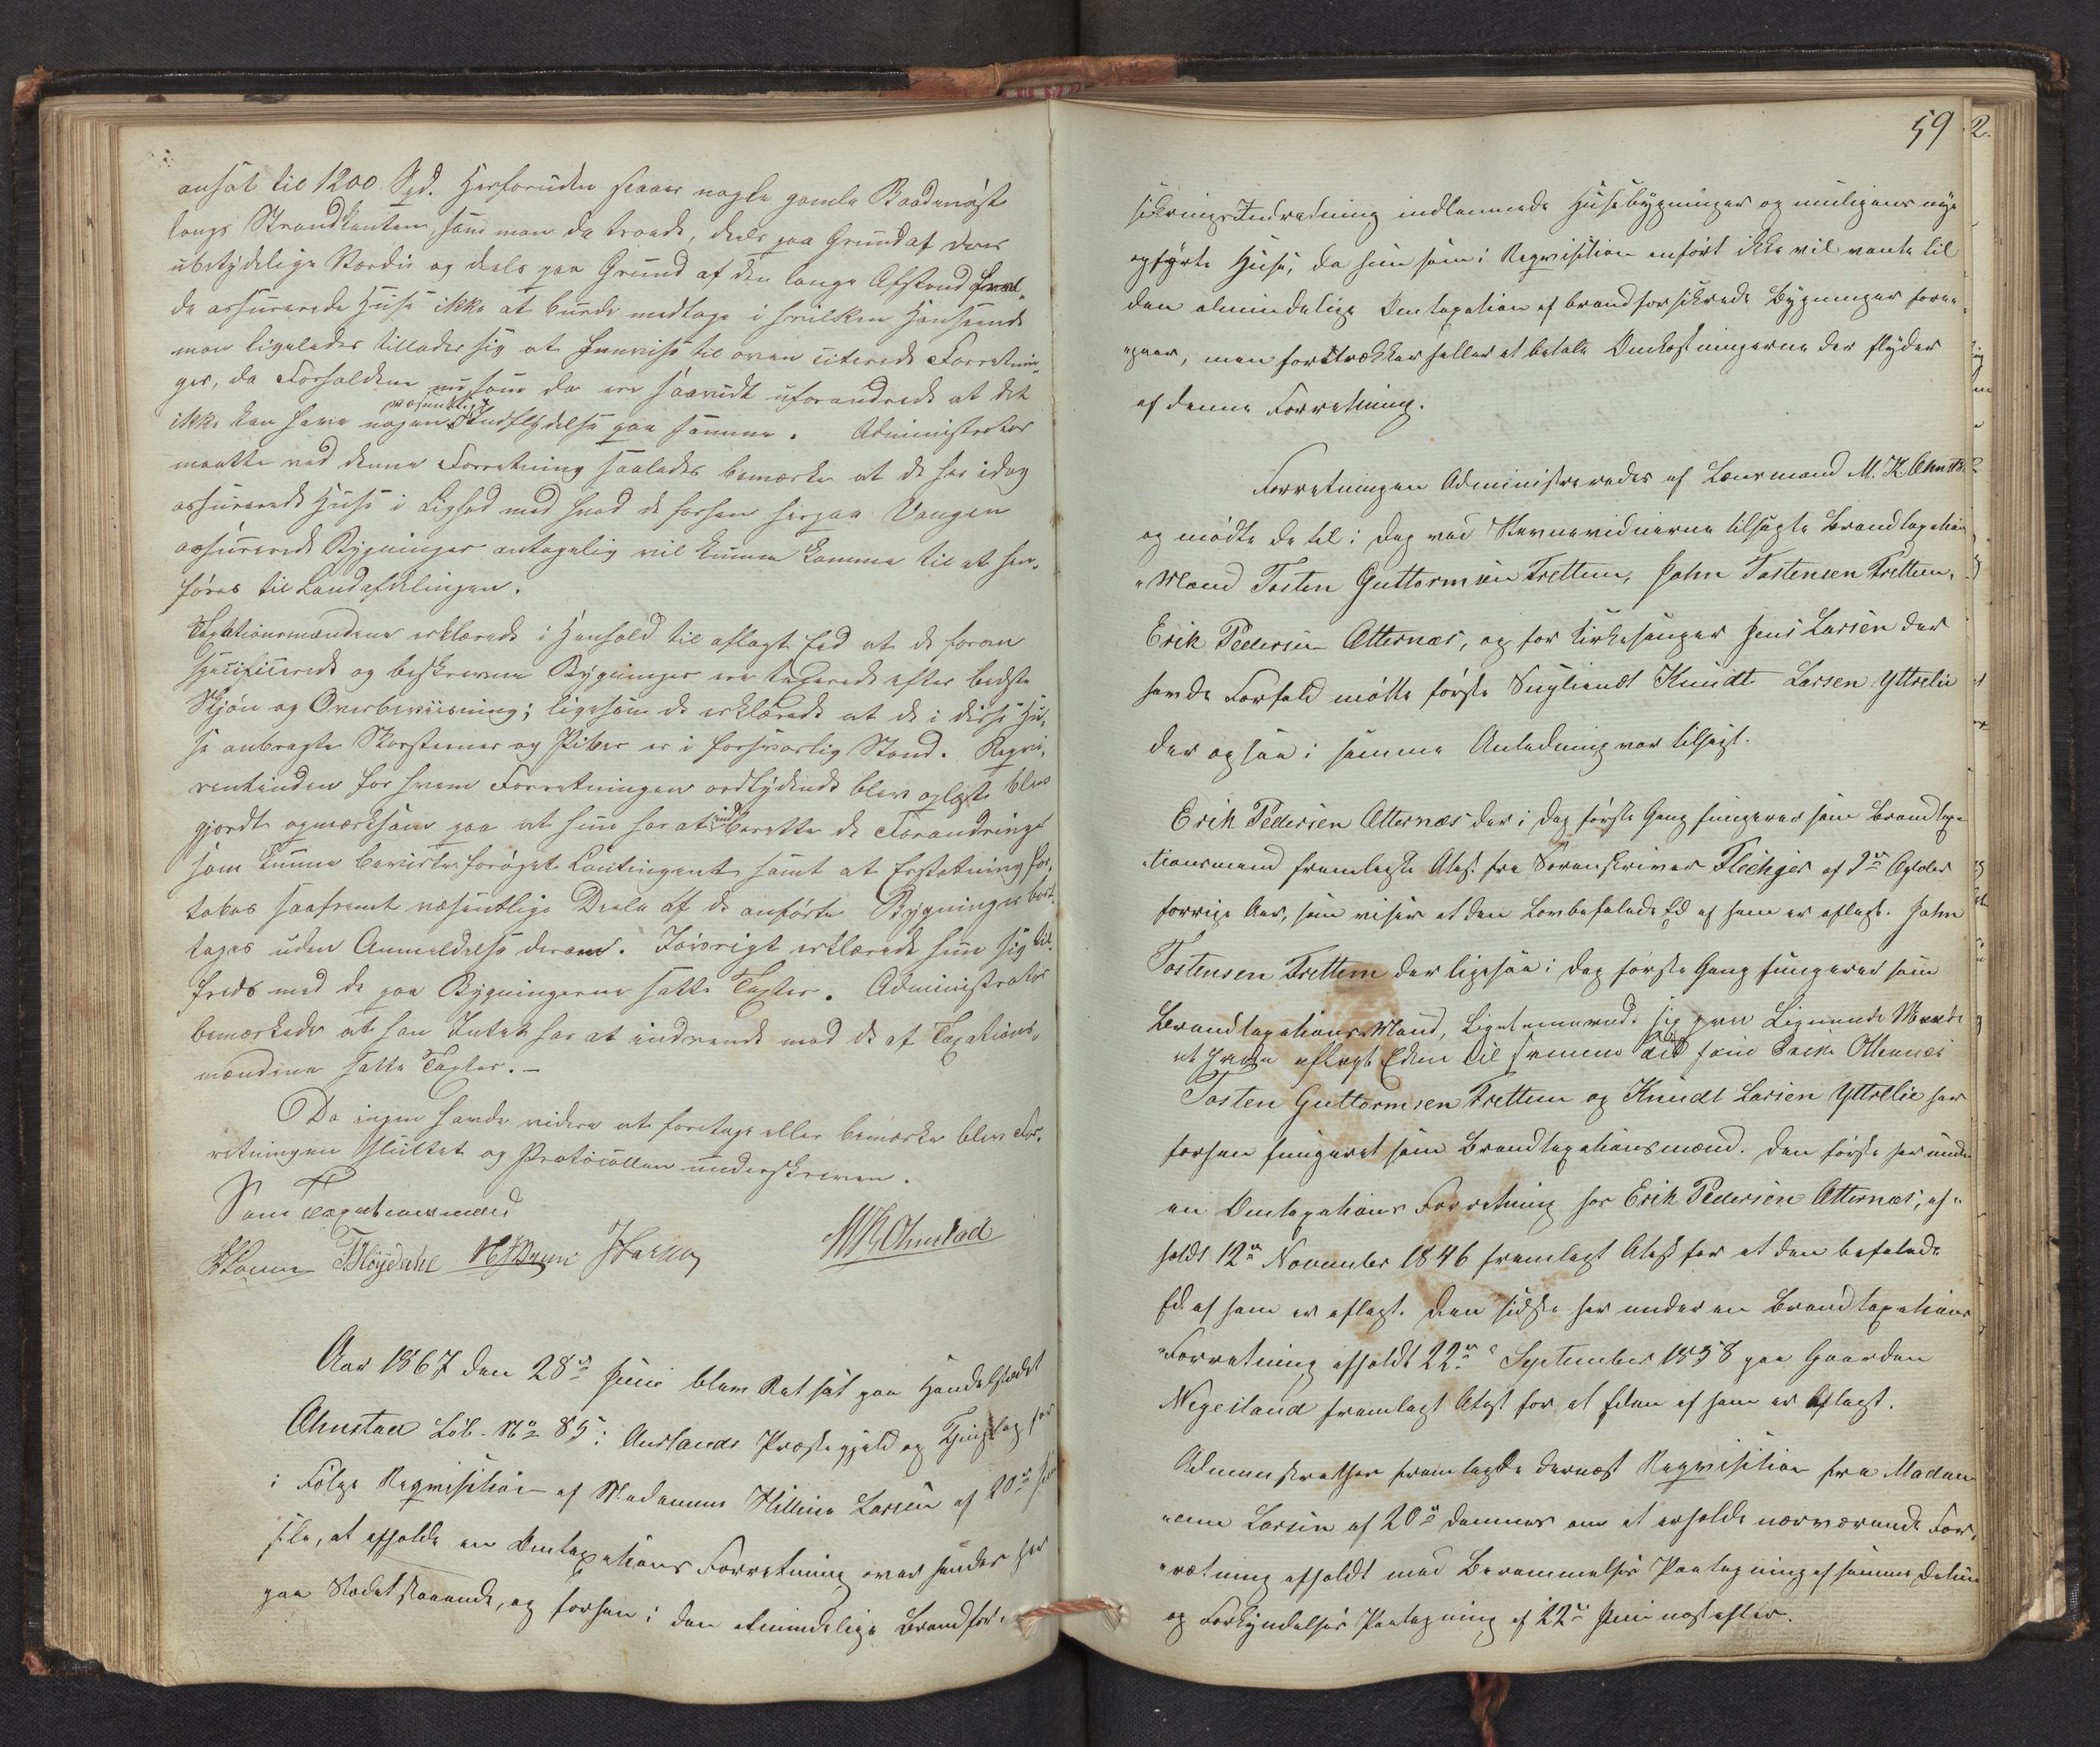 ansat til 1200 Spd. Herforuden staaer nogle gamle Baadenøste
langs Strandkanten, som man da troede, deels paa Grund af deres
ubetydelige Værdie og deels paa Grund af den lange Afstand fra
de assurerede Huse ikke at burde medtage i hvilken Henseende
man ligeledes tillader sig at henvise til oven citerede Forretnin-
ger, da Forholdene nu som da ere saavidt uforandrede at det
ikke kan have nogen væsentligt Indflydelse paa samme. Administrator
maatte ved denne Forretning saaledes bemærke at de her idag
assurerede Huse i Lighed med hvad de forhen herpaa Vangen
assurerede Bygninger antagelig vil kunne komme til at hen-
føres til Landafdelingen.
Taxationsmændene erklærede i Henhold til aflagt Eed at de foran
specificerede og beskrevne Bygninger ere taxerede efter bedste
Skjøn og Overbeviisning; ligesom de erklærede at de i disse Hu-
se anbragte Skorstene og Piber er i forsvarlig Stand. Reqvi-
rentinden for hvem Forretningen ordlydende blev oplæst blev
gjordt opmærksom paa at hun har at indberette de Forandringer
som kunne bevirke forøget Contingent samt at Erstatning for-
tabes saafremt væsentlige Deele af de anførte Bygninger bort-
tages uden Anmeldelse derom. Iøvrigt erklærede hun sig til-
freds med de paa Bygningerne satte Taxter. Administrator
bemærkede at han Intet har at indvende mod de af Taxations-
mændene satte Taxter. -
Da ingen havde videre at foretage eller bemærke blev For-
retningen sluttet og Protocollen underskreven.
Som Taxationsmænd
T Fløydahl JLarsen MKOhnstad
Aar 1867 den 28de Juni blev Ret sat paa Handelstedet
Ohnstad Løb. No 85 i Aurlands Præstegjeld og Thinglag for
i Følge Reqvisition af Madamme Larsen af 20de
at afholde en Omtaxations Forretning over hendes her
paa Stedet staaende, og forhen i den almindelige Brandfor-
59
sikrings Indretning indlemmede Huusebygninger og muligens nye
opførte Huse, da hun som i Reqvisition anført ikke vil vente til
den almindelige Omtaxation af brandforsikrede Bygninger fore-
gaaer, men foretrækker heller at betale Omkostningerne der flyder
af denne Forretning.
Forretningen Administreredes af Lænsmand M. K. Ohnstad
og mødte de til i Dag ved Stevnevidnerne tilsagte Brandtaxations
Mænd Tosten Guttormsen Frettem, John Tostensen Frettem,
Erik Pedersen Otternæs, og for Kirkesanger Jens Larsen der
havde Forfald møtte første Knudt Larsen Ytrelie
der ogsaa i samme Anledning var tilsagt.
Erik Pedersen Otternæs der i Dag første Gang fungerer som Brandtaxa-
tionsmand fremlagte Atest fra Sorenskriver Fleicher af 9de October
forrige Aar, som viser at den Lovbefalede Ed af ham er aflagt. John
Tostensen Frettem der ligesaa i Dag første Gang fungerer som
Brandtaxations-Mand,
at have aflagt Eden til samme Tid som Erik Otternæs
Tosten Guttormsen Frettem og Knudt Larsen Ytrelie har
forhen fungeret som Brandtaxationsmænd. Den første har under
en Omtaxations Forretning hos Erik Pedersen Otternæs, af-
holdt 12te November 1846 fremlagt Atest for at den befalede
Ed af ham er aflagt. Den sidste har under en Brandtaxations
Forretning afholdt 22de September 1858 paa Gaarden
fremlagt Atest for at Eden af ham er aflagt.
Administrator fremlagde dernæst Reqvisition fra Madam-
me Larsen af 20de dennes om at erholde nærværende For-
retning afholdt med Berammelses Paategning af samme Datum
og Forkyndelses Paategning af 22de Juni næstefter.